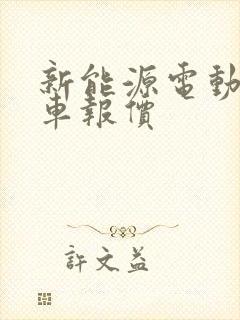 新能源電動
車報價
許文益